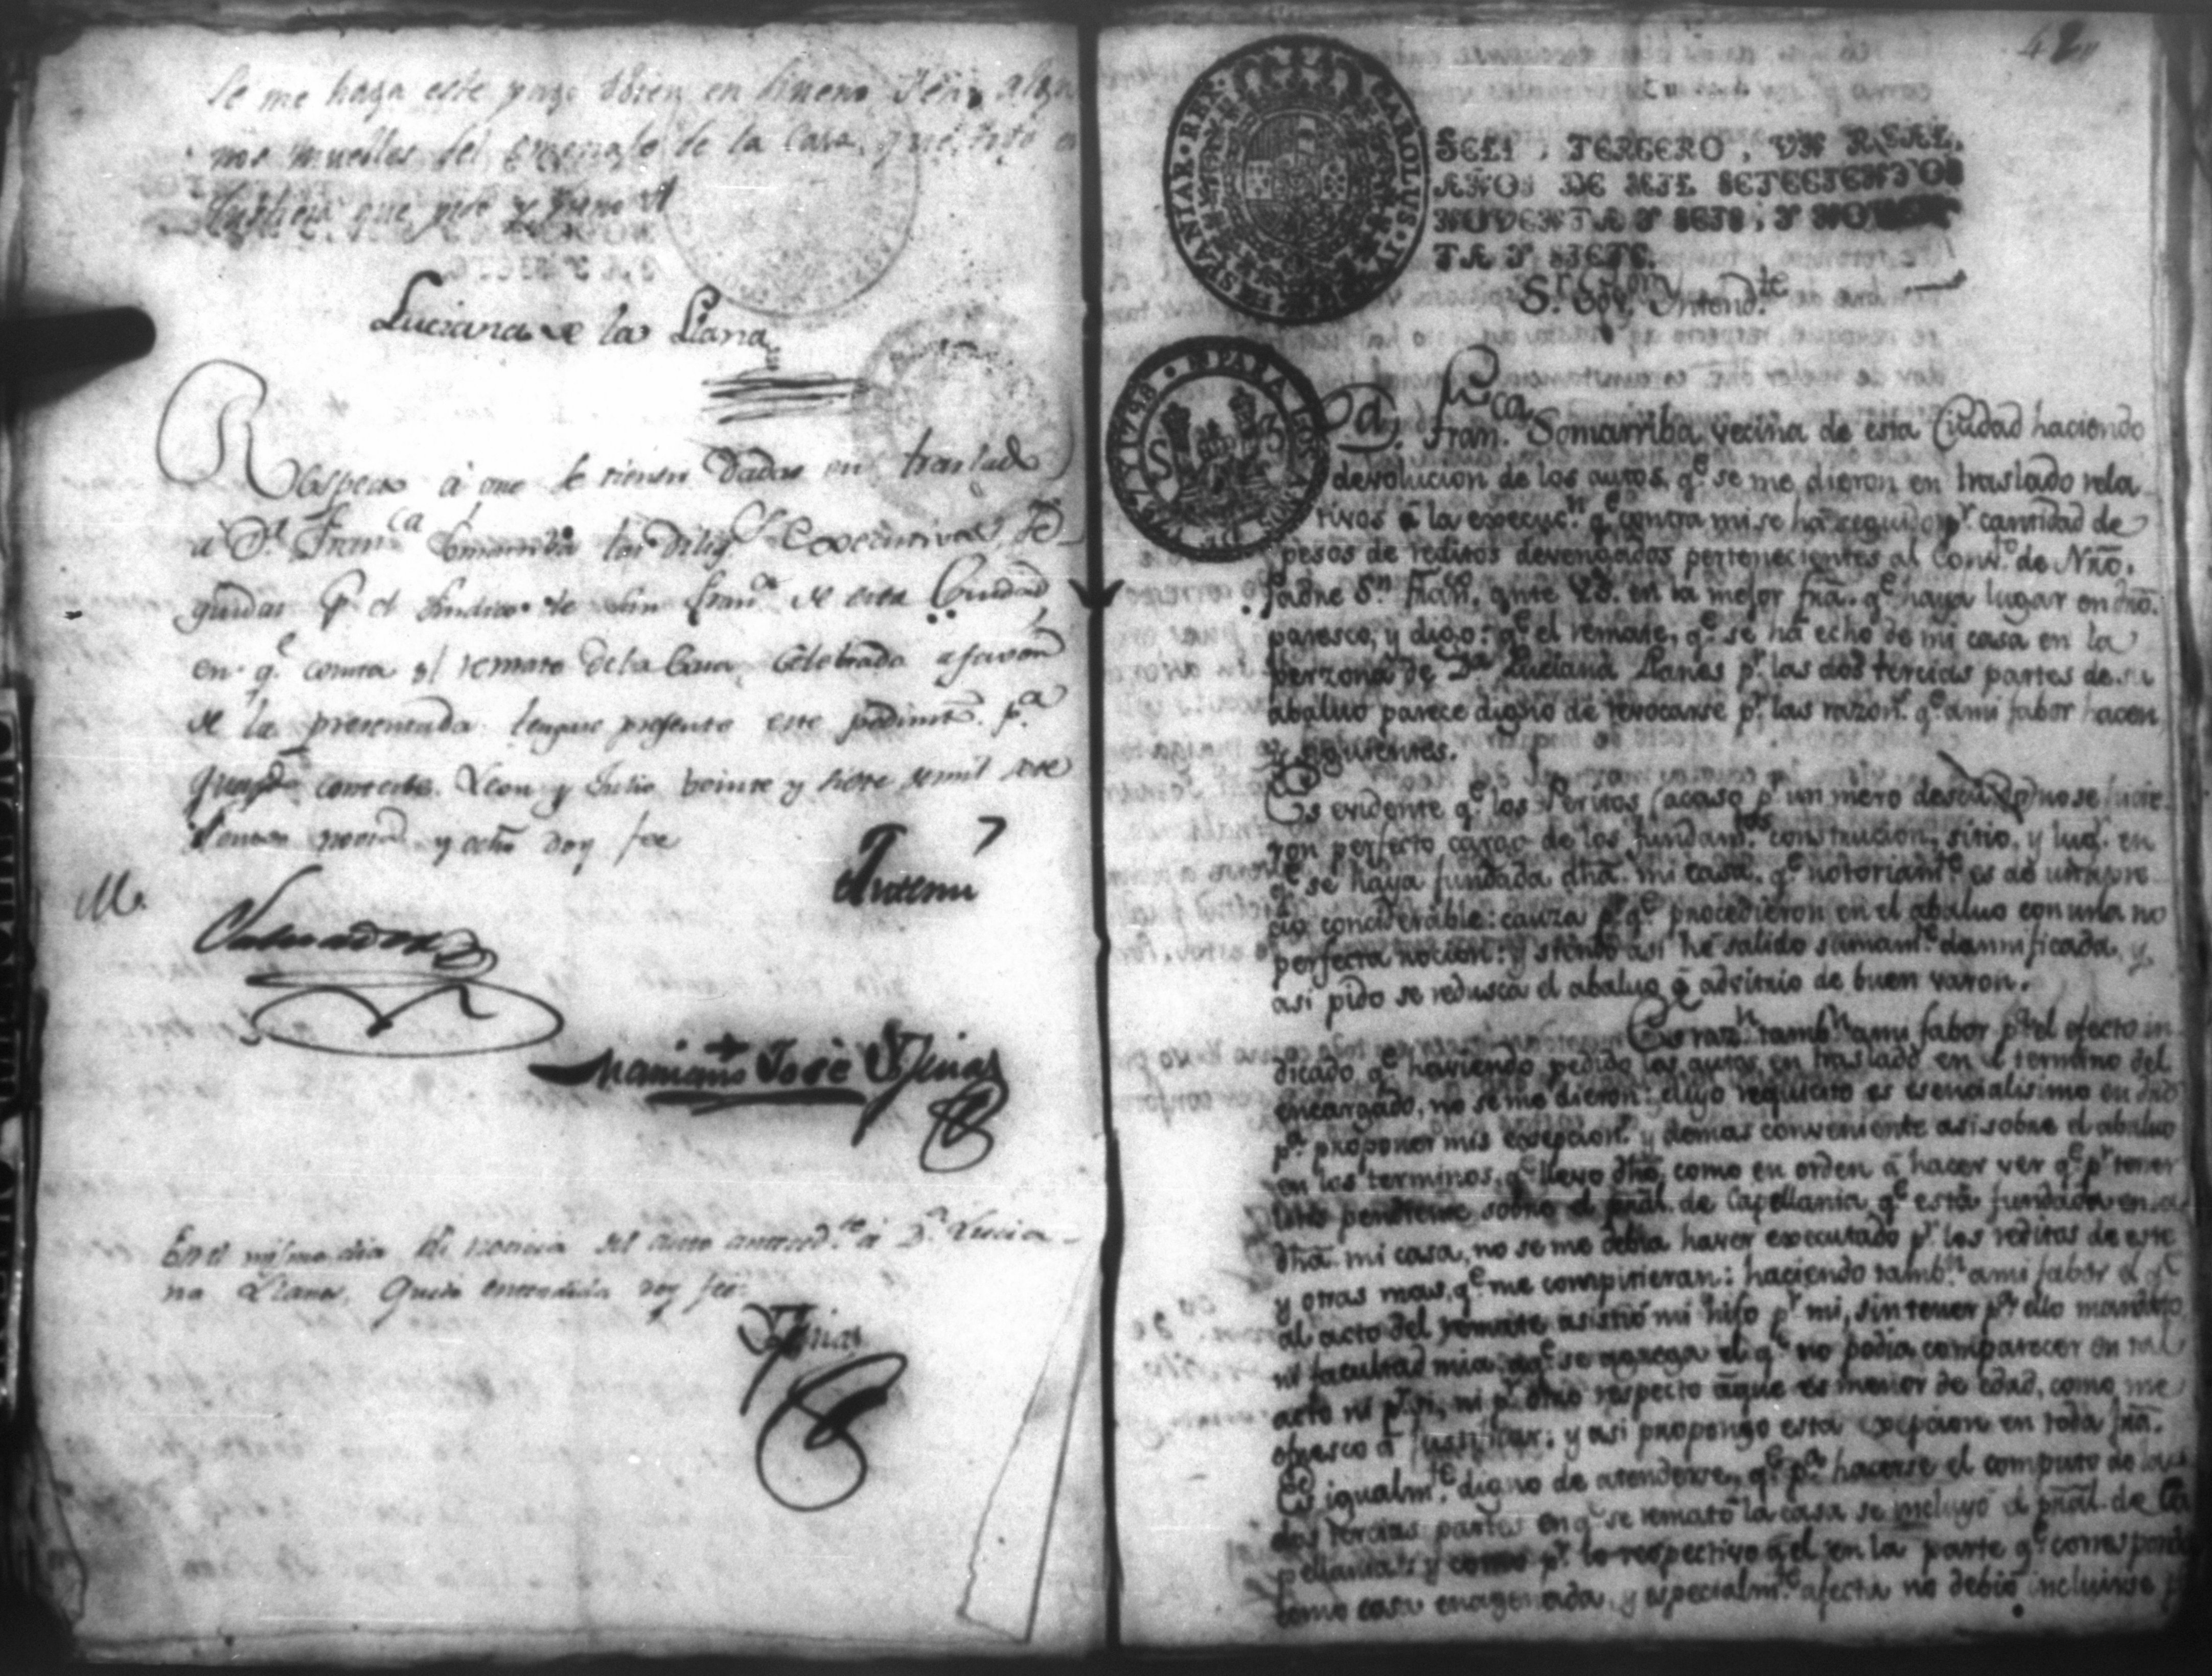 se me haga este pago bien en dinero, ô en algu
nos muebles del menage de la Casa, que todo es
Justicia que pido y juro &
Luciana de la Llana
Respecto â que se tienen dadas en traslado
a Dª. Franca Somarriba las dilig.s Executivas, se-
guidas pr. el Sindico de San Franco. de esta Ciudad
en qe. consta el remate de la Casa, Celebrado afavor
de la presentada tengase presente este pedimto. pa.
quando convenga. Leon y Julio veinte y siete de mil sete
cientos novta. y ocho doy fee
Salvador
Antemi
Mariano José
En el mismo dia hise noticia del auto anteced.te a Dª. Lucia-
na Llanes, Queda entendida doy fee
42
CAROLUS IV HISPANIAR. REX
SELLO TERCERO, VN REAL,
AÑOS DE MIL SETECIENTOS
NOVENTA Y SEIS, Y NOVEN-
TA Y SIETE.
PARA LOS AÑOS DE 1797 Y 1798
Sr. Govr. Intend.te
Da. Franca. Somarriba vecina de esta Ciudad haciendo
devolucion de los autos, qe. se me dieron en traslado rela
tivos â la execucn. qe. contra mi se ha seguido pr. cantidad de
pesos de reditos devengados pertenecientes al Convto. de Nrõ.
Padre Sn. Franco. ante VS. en la mejor frã. qe. haya lugar en drõ.
paresco, y digo: qe. el remate, qe. se ha echo de mi casa en la
perzona de Da. Luciana Llanes pr. las dos tercias partes de su
abaluo parece digno de revocarse pr. las razons. qe. ami fabor hacen
y siguientes.
Es evidente qe. los Peritos (acaso pr. un mero descuydo) no se hicie
ron perfecto cargo de los fundamtos. construcion, sitio, y lug.r en
qe. se haya fundada dhã. mi casa, qe. notoriamte. es de un pre
cio conciderable: cauza pr. qe. procedieron en el abaluo con una no
perfecta nocion: y siendo asi he salido sumamte. damnificada, y
asi pido se redusca el abaluo â advitrio de buen varon.
Es razn. tambn. ami fabor pr. el efecto in
dicado qe. haviendo pedido los autos en traslado en el termino del
encargado, no se me dieron: cuyo requisito es esencialisimo en drõ
pa. proponer mis excepcions. y demas conveniente asi sobre el abaluo
en los terminos, qe. llevo dhõ, como en orden â hacer ver qe. pr. tener
litis pendiente sobre el prãl. de Capellania, qe. está fundada en la
dhã. mi casa, no se me debia haver executado pr. los reditos de este
y otras mas, qe. me compitieran: haciendo tambn. ami fabor el qe.
al acto del remate asistió mi hijo pr. mi, sin tener pa. ello mandato,
ni facultad mia: aqe. se agrega el qe. no podia comparecer en tal
acto ni pr. si, ni pr. otro respecto âque es menor de edad, como me
ofresco â justificar: y asi propongo esta exepcion en toda frã.
Es igualmte. digno de atenderse, qe. pa. hacerse el computo de las
dos tercias partes en qe. se remató la casa se incluyó el prãl. de Ca
pellania: y como pr. lo respectivo âel en la parte qe. corresponde
como cosa enagenada, y especialmte. afecta no debió incluirse p